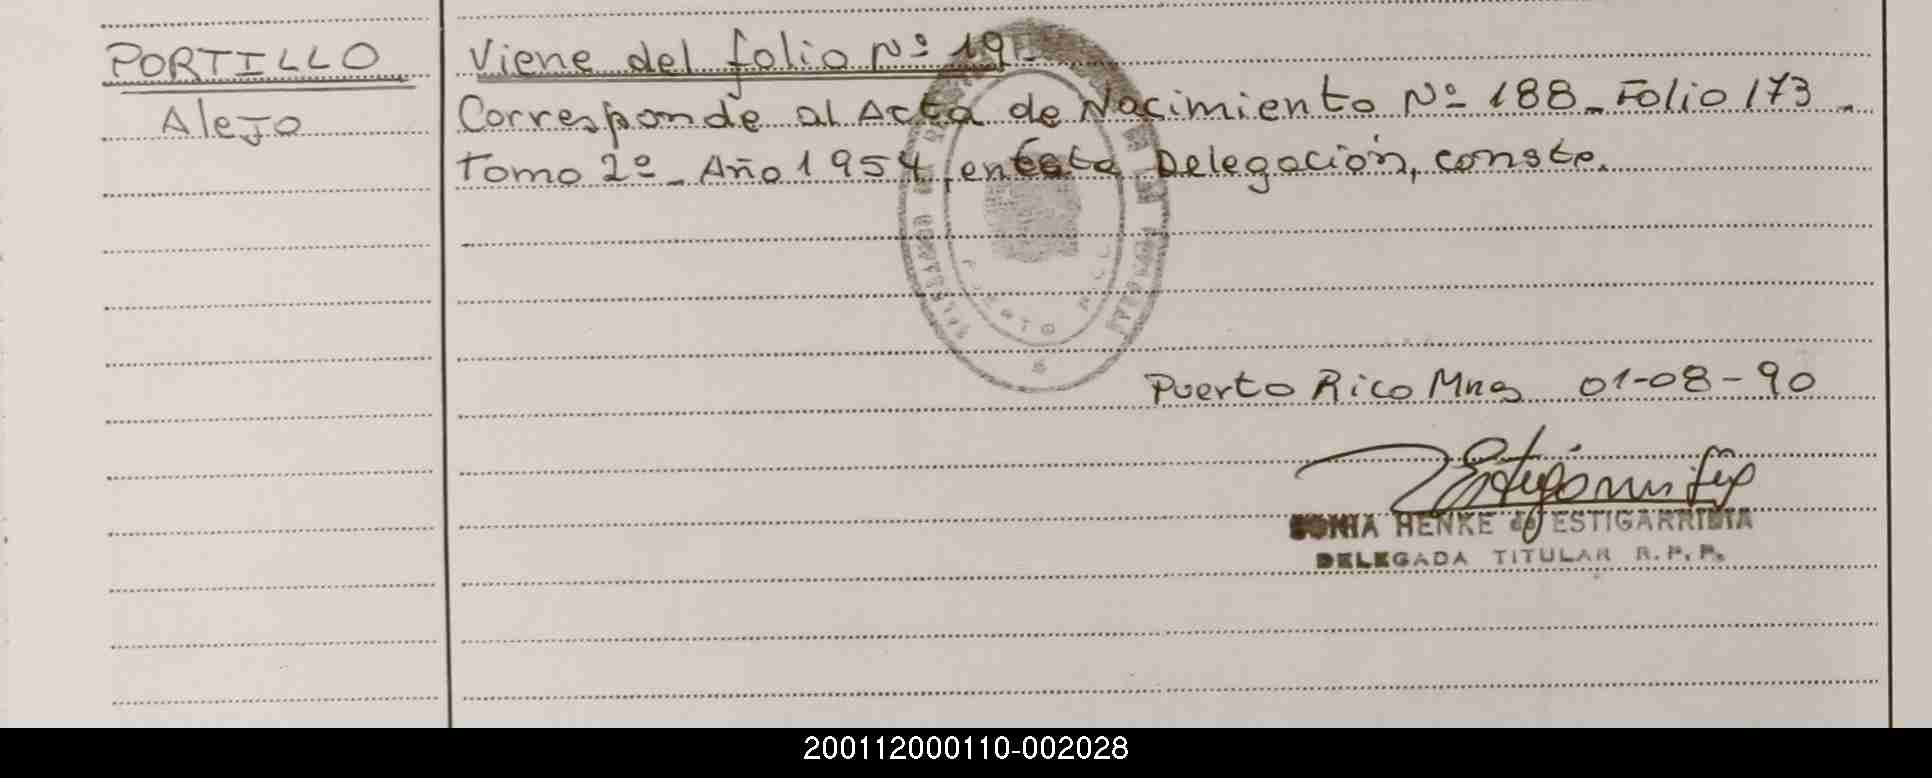 PORTILLO
Alejo
Viene del folio Nº 19.-
Corresponde al Acta de Nacimiento Nº 188_Folio 173.
Tomo 2º_ Año 1954, en esta Delegación, conste.
PUERTO RICO
Puerto Rico Mns 01-08-90
SONIA HENKE de ESTIGARRIBIA
DELEGADA TITULAR R. P. P.
200112000110-002028